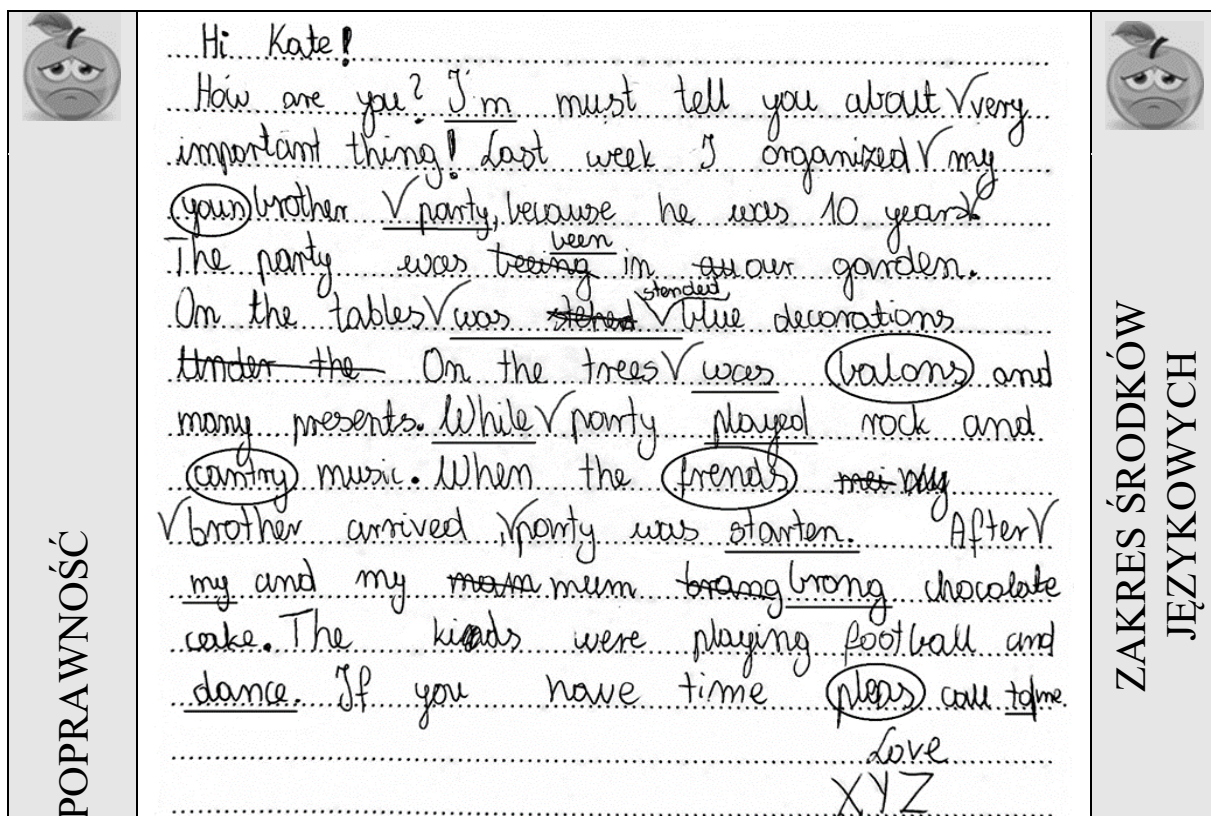 Hi Kate!
How are you? I'm must tell you about √ very
important thing! Last week I organized √ my
youn brother √ party, because he was 10 years √
The party was beeing been in our garden.
On the tables √ was stended √ blue decorations
Under the On the trees √ was balons and
many presents. While √ party played rock and
cantry music. When the frends my
√ brother arrived, √ party was starten. After √
my and my mam mum brang brong chocolate
cake. The kids were playing football and
dance. If you have time pleas call to me.
Love
XYZ
POPRAWNOŚĆ
ZAKRES ŚRODKÓW
JĘZYKOWYCH